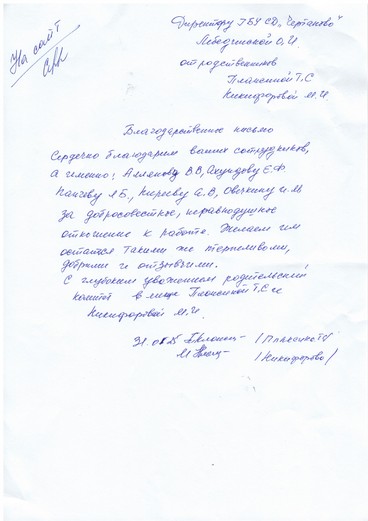 На сайт
Директору ГБУ СД "Чертаново"
Лебединской О.И.
от родственников
Плаксиной Т.С
Никифоровой М.И.
Благодарственное письмо
Сердечно благодарим ваших сотрудников,
а именно: В.В, Ахундову Е.Ф.
Я.Б., Кирееву А.В, Овечкину И.М
за добросовестное, неравнодушное
отношение к работе. Желаем им
остаться такими же терпеливыми,
добрыми и отзывчивыми.
С глубоким уважением родительский
комитет в лице Плаксиной Т.С и
Никифоровой М.И.
/Никифорова/